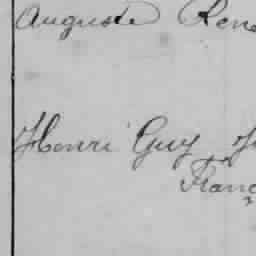 Auguste René
Henri Guy
Franç